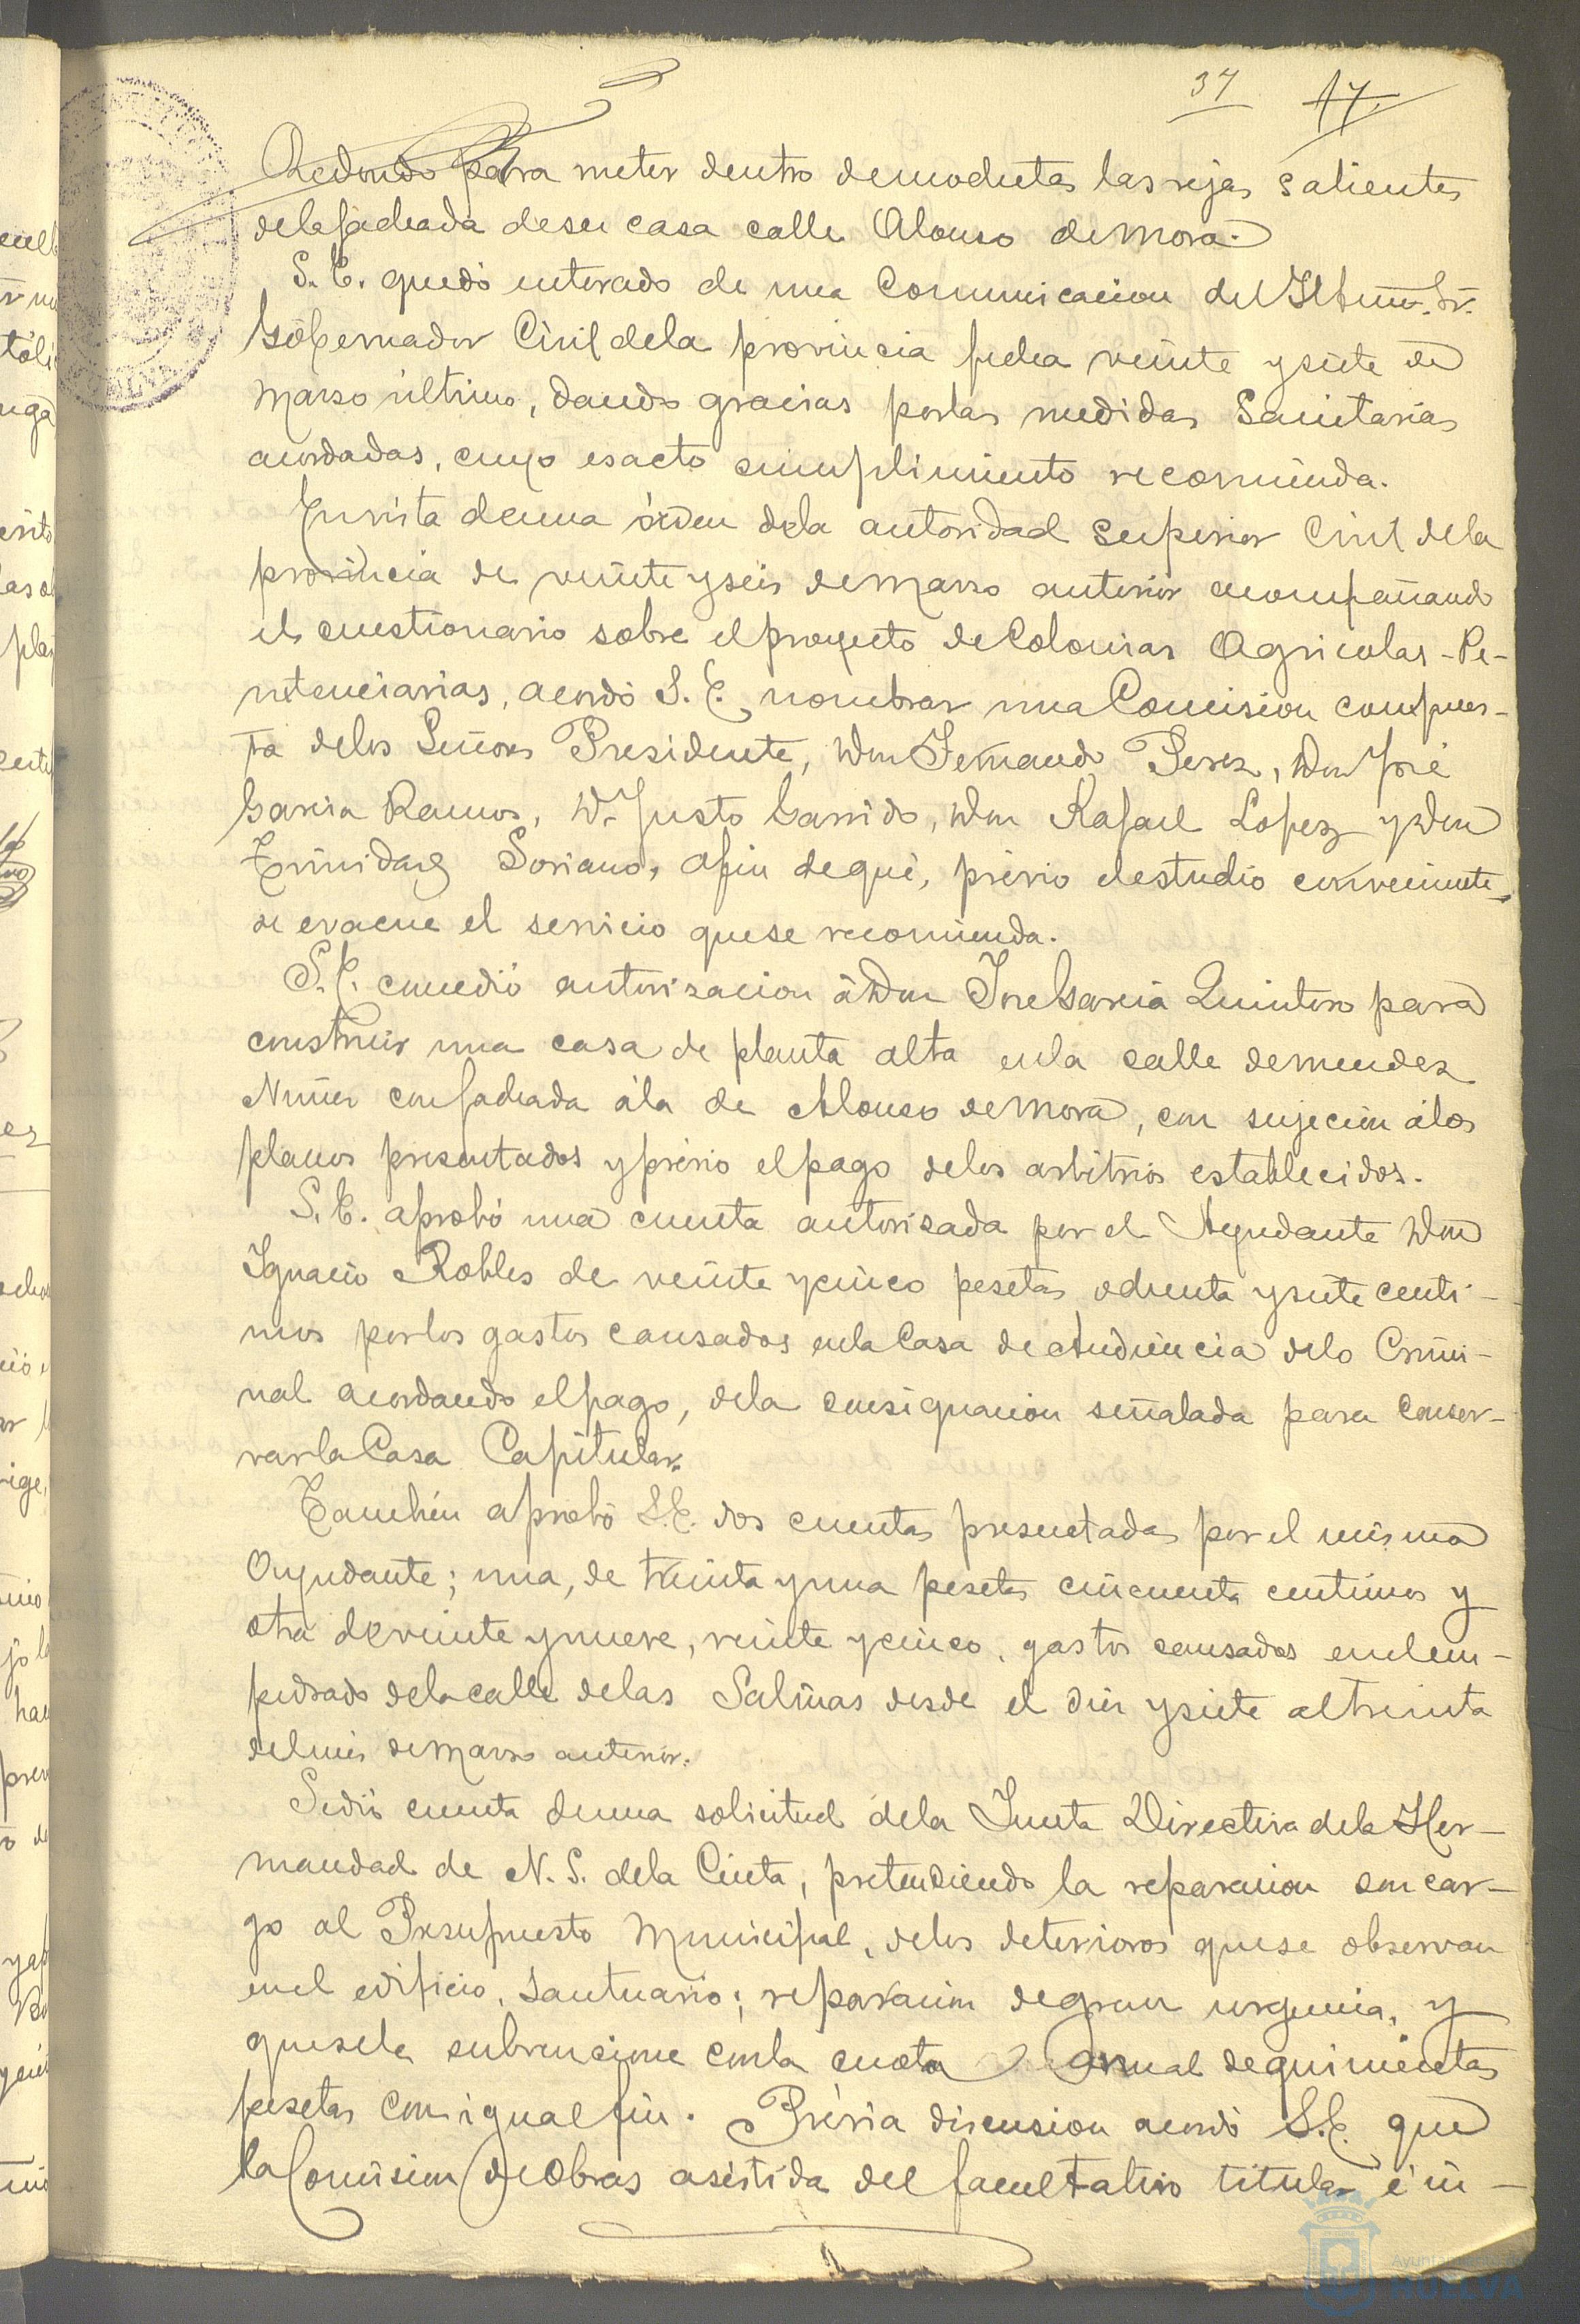 37 17.
Redondo para meter dentro de mochetas las rejas salientes
de la fachada de su casa calle Alonso de Mora.
S. E. quedó enterado de una Comunicacion del Iltmo. Sr.
Gobernador Civil de la provincia fecha veinte y siete de
Marzo último, dando gracias por las medidas Sanitarias
acordadas, cuyo esacto cumplimiento recomienda.
En vista de una órden de la autoridad superior Civil de la
provincia de veinte y seis de Marzo anterior acompañando
el cuestionario sobre el proyecto de Colonias Agricolas-Pe-
nitenciarias, acordó S. E. nombrar una Comision compues-
ta de los Señores Presidente, Don Fernando Perez, Don José
Garcia Ramos, D. Justo Garrido, Don Rafael Lopez y Don
Trinidad Soriano, á fin de que, prévio el estudio conveniente,
se evacue el servicio que se recomienda.
S. E. concedió autorizacion á Don José Garcia Quintero para
construir una casa de planta alta en la calle de Mendez
Nuñez con fachada á la de Alonso de Mora, con sujecion á los
planos presentados y prévio el pago de los arbitrios establecidos.
S. E. aprobó una cuenta autorizada por el Ayudante Don
Ignacio Robles de veinte y cinco pesetas ochenta y siete centi-
mos por los gastos causados en la Casa de Audiencia de lo Crimi-
nal acordando el pago, de la consignacion señalada para conser-
var la Casa Capitular.
Tambien aprobó S. E. dos cuentas presentadas por el mismo
Ayudante; una, de treinta y una pesetas cincuenta centimos y
otra de veinte y nueve, veinte y cinco, gastos causados en el em-
pedrado de la calle de las Salinas desde el diez y siete al treinta
del mes de Marzo anterior.
Se dió cuenta de una solicitud de la Junta Directiva de la Her-
mandad de N. S. de la Cinta, pretendiendo la reparacion con car-
go al Presupuesto Municipal, de los deterioros que se observan
en el edificio, Santuario; reparacion de gran urgencia, y
que se le subvencione con la cuota anual de quinientas
pesetas con igual fin. Prévia discusion acordó S. E. que
la Comision de Obras asistida del facultativo titular é in-
Ayuntamiento
HUELVA